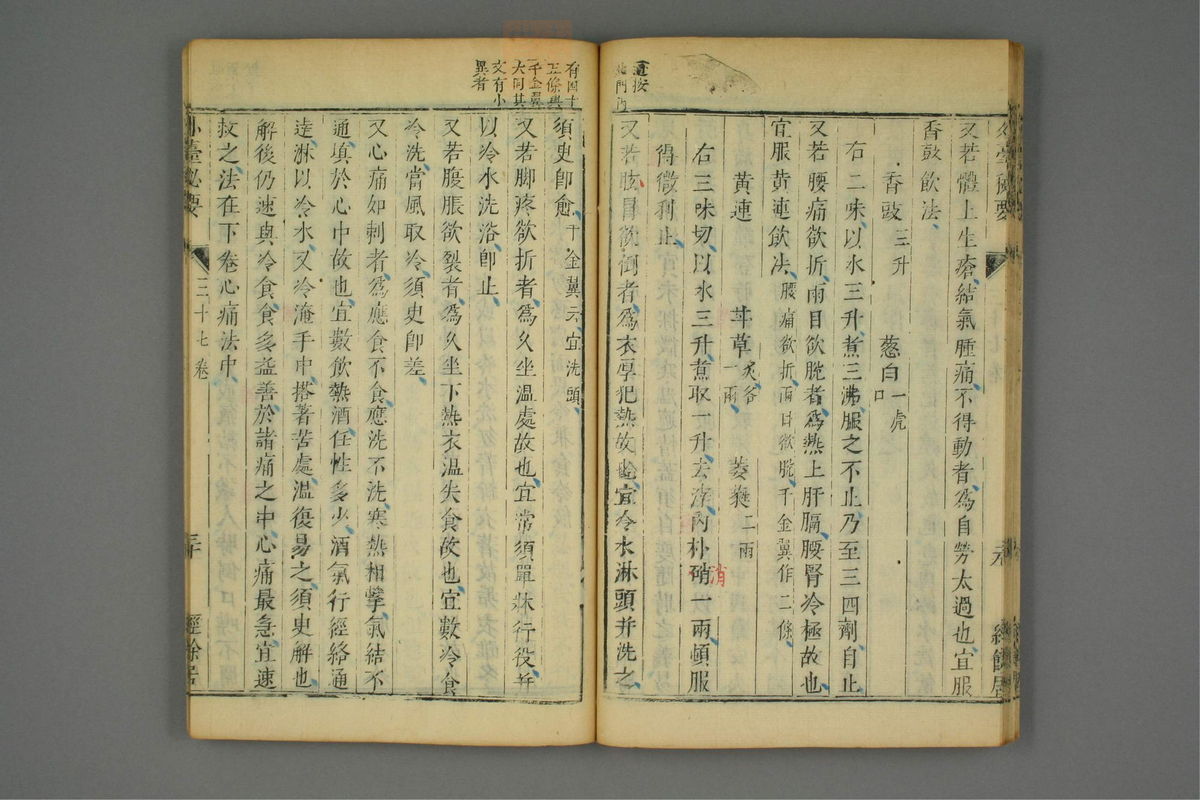 又若體上生瘡結氣腫痛不得動者為自勞太過也宜服
香豉飲法
香豉三升 葱白一虎口
右二味以水三升煮三沸服之不止乃至三四劑自止
又若腰痛欲折兩目欲脫者為熱上肝膈腰腎冷極故也
宜服黃連飲法腰痛欲折兩目欲脫千金翼作二條
黃連 甘草炙各一兩 葳蕤二兩
右三味切以水三升煮取一升去滓內朴硝一兩頓服
得微利止
又若眩冒欲倒者為衣厚犯熱故也宜冷水淋頭并洗之
道按
有四十
五條與
千金翼
大同其
文有小
異者
須臾即愈千金翼云宜洗頭
又若脚疼欲折者為久坐溫處故也宜常須單牀行役并
以冷水洗浴即止
又若腹脹欲裂者為久坐下熱衣溫失食故也宜數冷食
冷洗當風取冷須臾即差
又心痛如刺者為應食不食應洗不洗寒熱相擊氣結不
通填於心中故也宜數飲熱酒任性多少酒氣行經絡通
達淋以冷水又冷淹手巾搭著苦處溫復易之須臾解也
解後仍速與冷食食多益善於諸痛之中心痛最急宜速
救之法在下卷心痛法中
外臺秘要 三十七卷 三十 經餘居